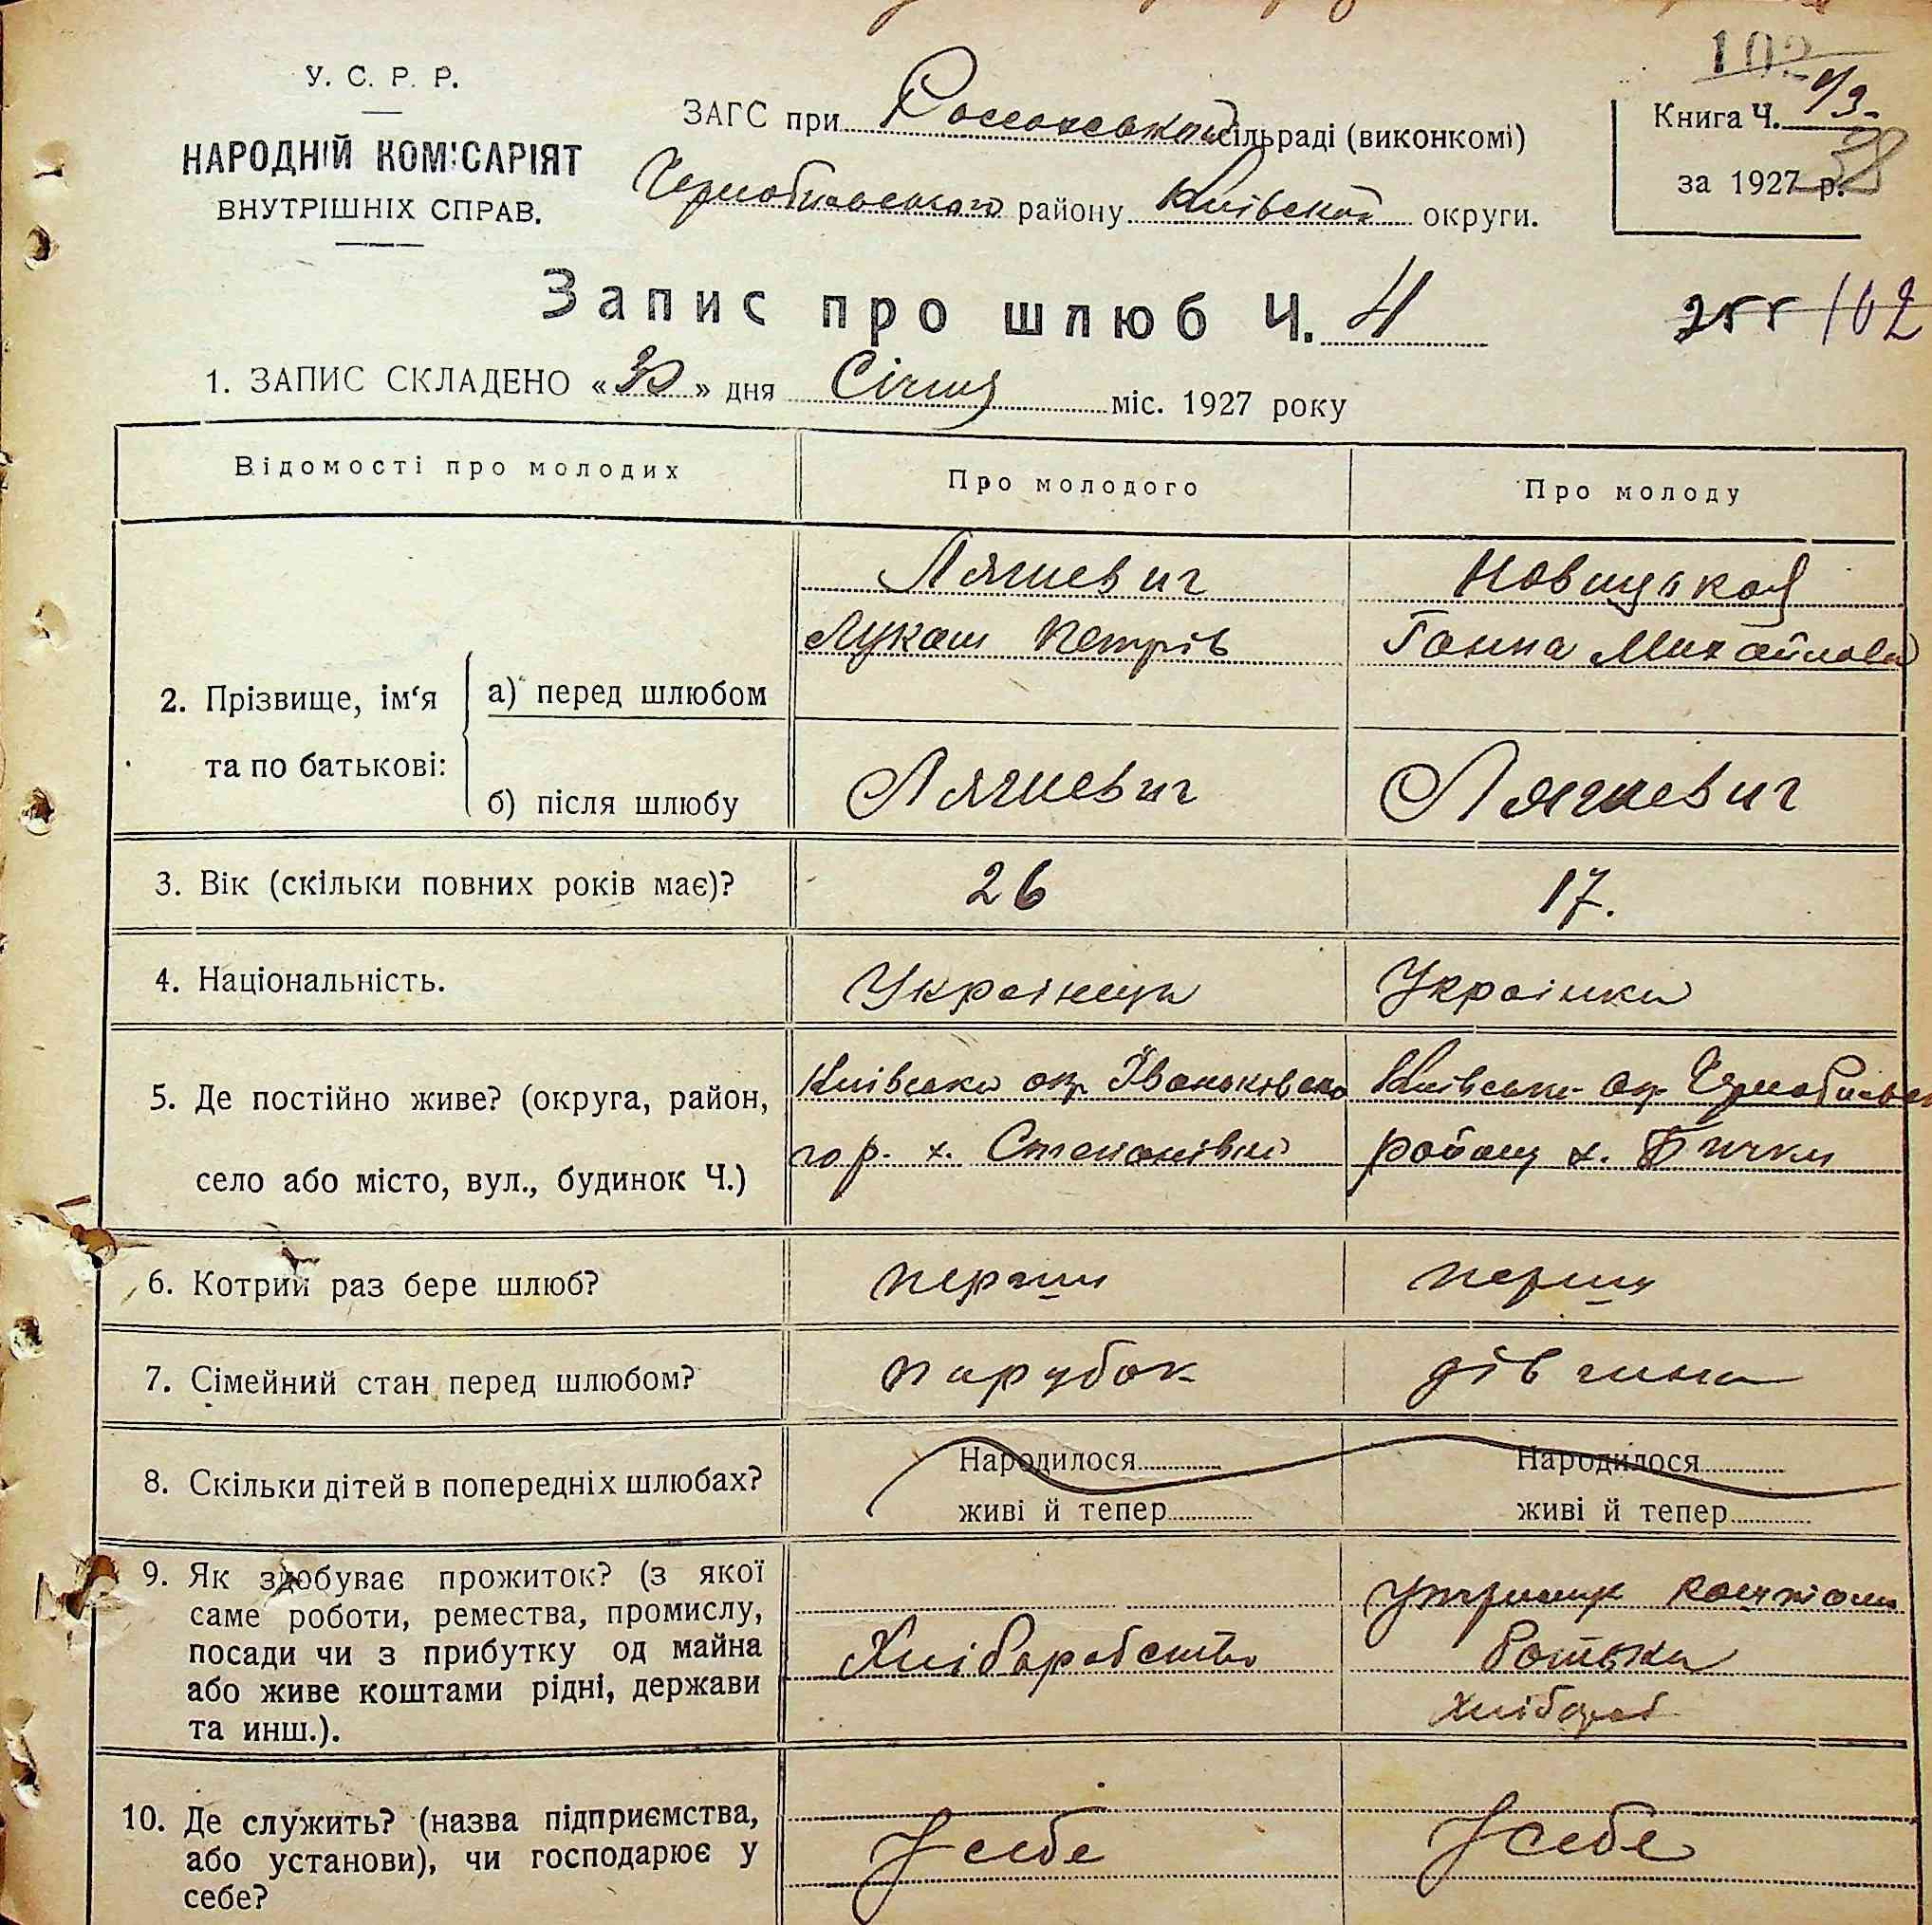 102
У. С. Р. Р.
НАРОДНІЙ КОМІСАРІЯТ
ВНУТРІШНІХ СПРАВ.
ЗАГС при Россохській сільраді (виконкомі)
Чернобильського району Київської округи.
Книга Ч.
за 1927 р.
38
Запис про шлюб Ч. 4
255 102
1. ЗАПИС СКЛАДЕНО «30» дня Січня міс. 1927 року
Відомості про молодих Про молодого Про молоду
2. Прізвище, ім‘я та по батькові:
а) перед шлюбом
Лягиевич
Лукаш Петрів
Новицькая
Ганна Михайлова
б) після шлюбу Лягиевич Лягиевич
3. Вік (скільки повних років має)? 26 17.
4. Національність. Українець Українка
5. Де постійно живе? (округа, район,
село або місто, вул., будинок Ч.)
Київська окр. Іваньковсько
го р. х. Степанівка
Київська окр. Чернобильск
району х. Бички
6. Котрий раз бере шлюб? перший перший
7. Сімейний стан перед шлюбом? парубок дівчина
8. Скільки дітей в попередніх шлюбах?
Народилося
живі й тепер
Народилося
живі й тепер
9. Як здобуває прожиток? (з якої
саме роботи, ремества, промислу,
посади чи з прибутку од майна
або живе коштами рідні, держави
та инш.).
Хліборобство
коштом
батька
хлібороб
10. Де служить? (назва підприємства,
або установи), чи господарює у
себе?
У себе
У себе